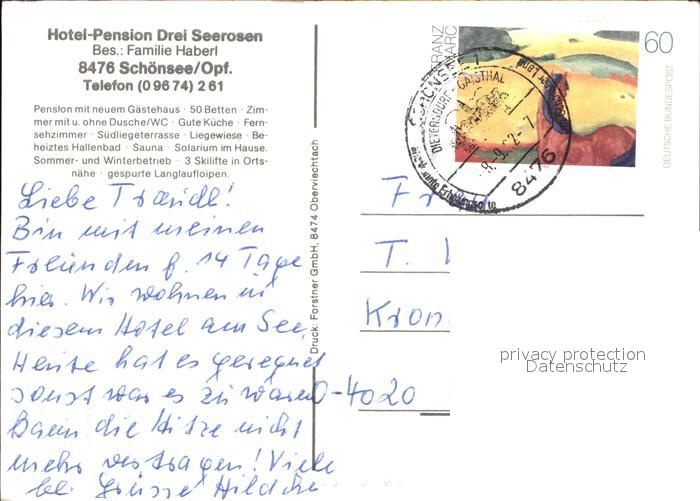 Hotel-Pension Drei Seerosen
Bes.: Familie Haberl
8476 Schönsee/Opf.
Telefon (0 96 74) 2 61
Pension mit neuem Gästehaus · 50 Betten · Zim-
mer mit u. ohne Dusche/WC · Gute Küche · Fern-
sehzimmer · Südliegeterrasse · Liegewiese · Be-
heiztes Hallenbad · Sauna · Solarium im Hause.
Sommer- und Winterbetrieb · 3 Skilifte in Orts-
nähe · gespurte Langlaufloipen.
Liebe Traudl!
Bin mit meinen
Freunden f. 14 Tage
hier. Wir wohnen in
diesem Hotel am See.
Heute hat es geregnet
sonst war es zu warm
Kann die Hitze nicht
mehr vertragen! Viele
Grüsse
Druck: Forstner GmbH, 8474 Oberviechtach
FRANZ
MARC
60
DEUTSCHE BUNDESPOST
DIETERSDORF
8476
T.
Kron
D-4020
privacy protection
Datenschutz